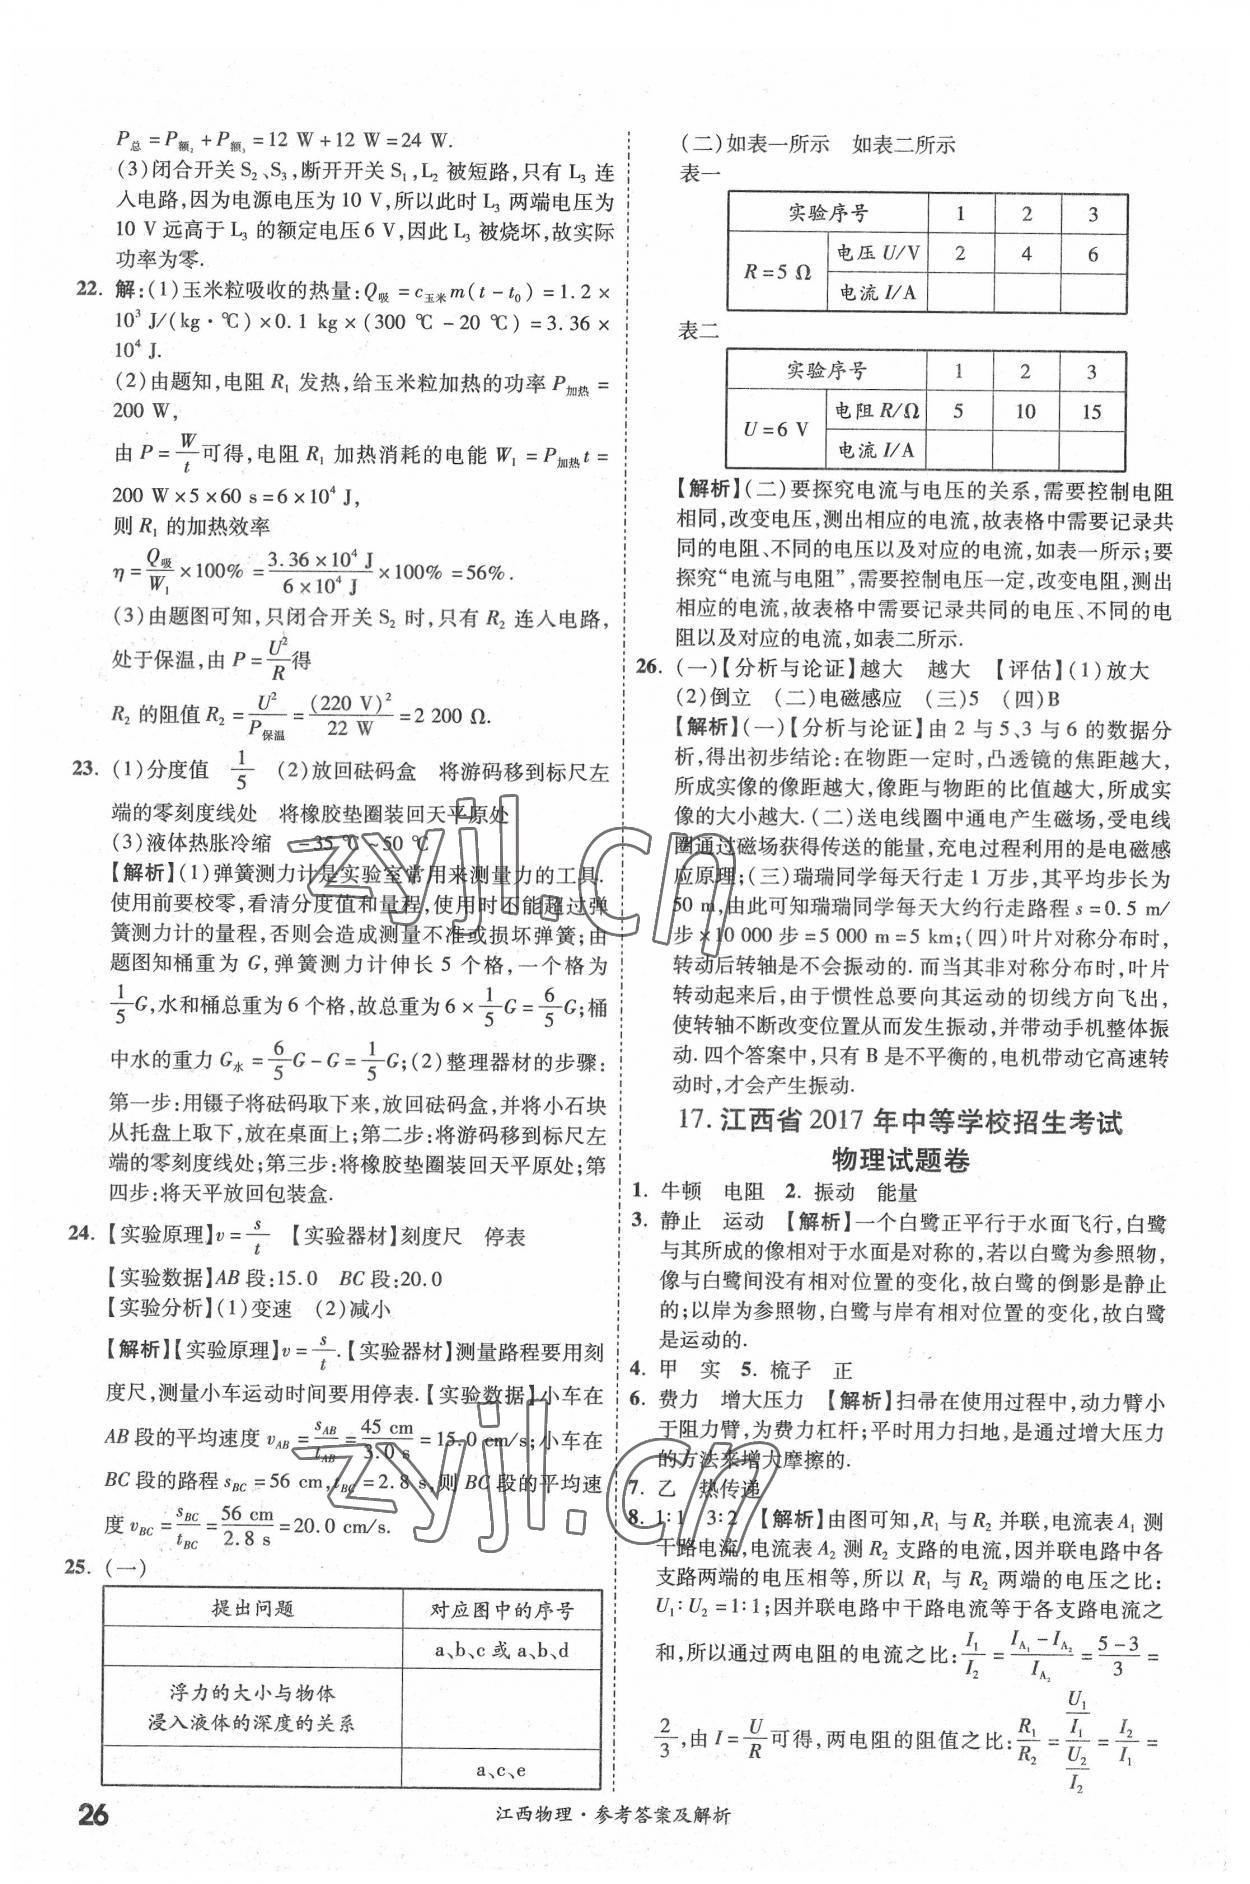 P总=P额₂+P额₃=12 W+12 W=24 W.
(3)闭合开关S₂、S₃,断开开关S₁,L₂ 被短路,只有 L₃ 连
入电路,因为电源电压为 10 V,所以此时 L₃ 两端电压为
10 V远高于 L₃ 的额定电压6 V,因此 L₃ 被烧坏,故实际
功率为零.
22. 解:(1)玉米粒吸收的热量:Q吸=c玉米m(t-t₀)=1.2×
10³ J/(kg·℃)×0.1 kg×(300 ℃-20 ℃)=3.36×
10⁴ J.
(2)由题知,电阻 R₁ 发热,给玉米粒加热的功率 P加热=
200 W,
由 P=W/t可得,电阻 R₁ 加热消耗的电能 W₁=P加热t=
200 W×5×60 s=6×10⁴ J,
则 R₁ 的加热效率
η=Q吸/W₁×100%=3.36×10⁴ J/6×10⁴ J×100%=56%.
(3)由题图可知,只闭合开关 S₂ 时,只有 R₂ 连入电路,
处于保温,由 P=U²/R得
R₂ 的阻值 R₂=U²/P保温=(220 V)²/22 W=2 200 Ω.
23. (1)分度值 1/5 (2)放回砝码盒 将游码移到标尺左
端的零刻度线处 将橡胶垫圈装回天平原处
(3)液体热胀冷缩 -35 ℃~50 ℃
【解析】(1)弹簧测力计是实验室常用来测量力的工具.
使用前要校零,看清分度值和量程,使用时不能超过弹
簧测力计的量程,否则会造成测量不准或损坏弹簧;由
题图知桶重为 G,弹簧测力计伸长 5 个格,一个格为
1/5G,水和桶总重为 6 个格,故总重为 6×1/5G=6/5G;桶
中水的重力 G水=6/5G-G=1/5G;(2)整理器材的步骤:
第一步:用镊子将砝码取下来,放回砝码盒,并将小石块
从托盘上取下,放在桌面上;第二步:将游码移到标尺左
端的零刻度线处;第三步:将橡胶垫圈装回天平原处;第
四步:将天平放回包装盒.
24. 【实验原理】v=s/t 【实验器材】刻度尺 停表
【实验数据】AB 段:15.0 BC 段:20.0
【实验分析】(1)变速 (2)减小
【解析】【实验原理】v=s/t.【实验器材】测量路程要用刻
度尺,测量小车运动时间要用停表.【实验数据】小车在
AB 段的平均速度 vAB=sAB/tAB=45 cm/3.0 s=15.0 cm/s;小车在
BC 段的路程 sBC=56 cm,tBC=2.8 s,则 BC 段的平均速
度 vBC=sBC/tBC=56 cm/2.8 s=20.0 cm/s.
25. (一)
提出问题 对应图中的序号
a、b、c 或 a、b、d
浮力的大小与物体
浸入液体的深度的关系
a、c、e
(二)如表一所示 如表二所示
表一
实验序号 1 2 3
R=5 Ω 电压 U/V 2 4 6
电流 I/A
表二
实验序号 1 2 3
U=6 V 电阻 R/Ω 5 10 15
电流 I/A
【解析】(二)要探究电流与电压的关系,需要控制电阻
相同,改变电压,测出相应的电流,故表格中需要记录共
同的电阻、不同的电压以及对应的电流,如表一所示;要
探究“电流与电阻”,需要控制电压一定,改变电阻,测出
相应的电流,故表格中需要记录共同的电压、不同的电
阻以及对应的电流,如表二所示.
26. (一)【分析与论证】越大 越大 【评估】(1)放大
(2)倒立 (二)电磁感应 (三)5 (四)B
【解析】(一)【分析与论证】由 2 与 5、3 与 6 的数据分
析,得出初步结论:在物距一定时,凸透镜的焦距越大,
所成实像的像距越大,像距与物距的比值越大,所成实
像的大小越大.(二)送电线圈中通电产生磁场,受电线
圈通过磁场获得传送的能量,充电过程利用的是电磁感
应原理;(三)瑞瑞同学每天行走 1 万步,其平均步长为
50 m,由此可知瑞瑞同学每天大约行走路程 s=0.5 m/
步×10 000 步=5 000 m=5 km;(四)叶片对称分布时,
转动后转轴是不会振动的.而当其非对称分布时,叶片
转动起来后,由于惯性总要向其运动的切线方向飞出,
使转轴不断改变位置从而发生振动,并带动手机整体振
动.四个答案中,只有 B 是不平衡的,电机带动它高速转
动时,才会产生振动.
17. 江西省 2017 年中等学校招生考试
物理试题卷
1. 牛顿 电阻 2. 振动 能量
3. 静止 运动 【解析】一个白鹭正平行于水面飞行,白鹭
与其所成的像相对于水面是对称的,若以白鹭为参照物,
像与白鹭间没有相对位置的变化,故白鹭的倒影是静止
的;以岸为参照物,白鹭与岸有相对位置的变化,故白鹭
是运动的.
4. 甲 实 5. 梳子 正
6. 费力 增大压力 【解析】扫帚在使用过程中,动力臂小
于阻力臂,为费力杠杆;平时用力扫地,是通过增大压力
的方法来增大摩擦的.
7. 乙 热传递
8. 1∶1 3∶2 【解析】由图可知,R₁ 与 R₂ 并联,电流表 A₁ 测
干路电流,电流表 A₂ 测 R₂ 支路的电流,因并联电路中各
支路两端的电压相等,所以 R₁ 与 R₂ 两端的电压之比:
U₁∶U₂=1∶1;因并联电路中干路电流等于各支路电流之
和,所以通过两电阻的电流之比:I₁/I₂=(IA₁-IA₂)/IA₂=(5-3)/3=
2/3,由 I=U/R可得,两电阻的阻值之比:R₁/R₂=(U₁/I₁)/(U₂/I₂)=I₂/I₁=
26
江西物理·参考答案及解析
zyjl.cn
zyjl.cn